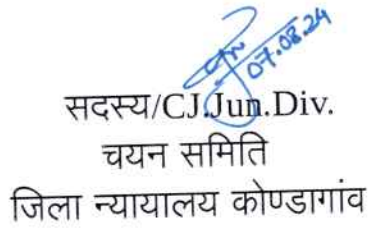 07.08.24
सदस्य/CJ.Jun.Div.
चयन समिति
जिला न्यायालय कोण्डागांव